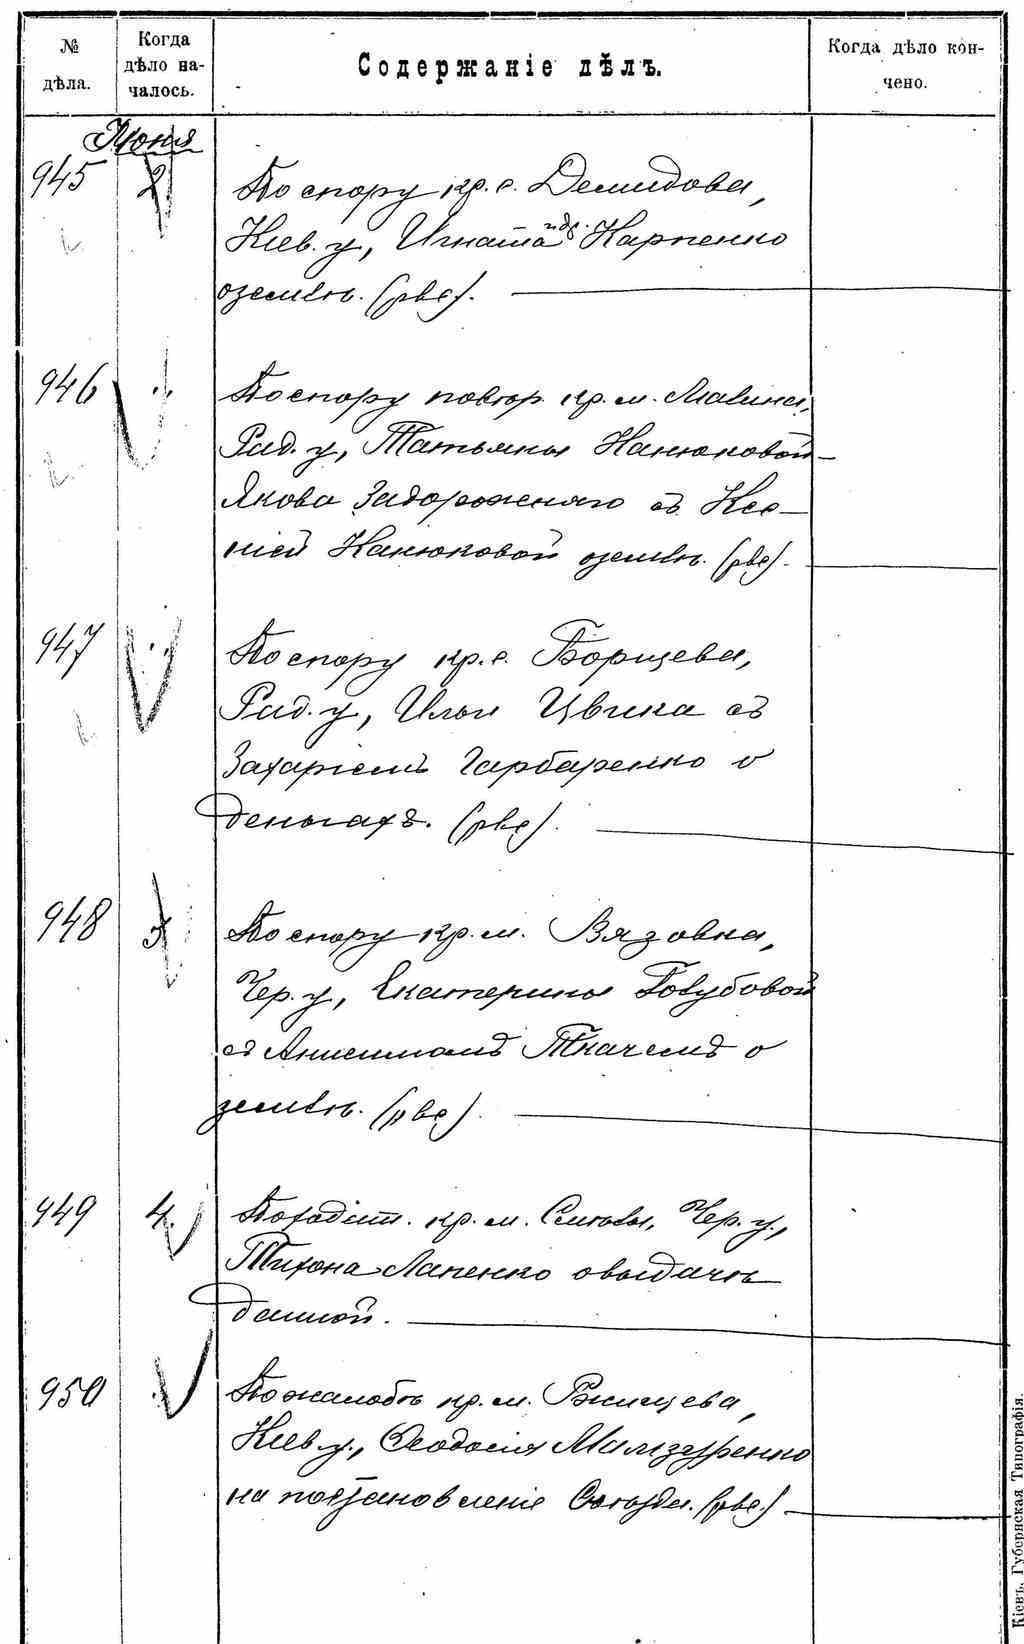 № дѣла.
Когда дѣло на-
чалось.
Содержаніе дѣлъ.
Когда дѣло кон-
чено.
Июня
945 2 По спору кр. с. Демидова,
Кіев. у, Игната и др. Карпенко
о землѣ. (рвс).
946 По спору повѣр. кр. м. Макина,
Рад. у, Татьяны Канюковой
Якова Задорожняго съ Ксе-
ніей Канюковой о землѣ. (рвс).
947 По спору кр. с. Борщева,
Рад. у, Ильи Цвика съ
Захаріемъ Гарбаренко о
деньгахъ. (рвс).
948 3 По спору кр. м. Вязовка,
Чер. у, Екатерины Голубовой
съ Анисимомъ Ткачемъ о
землѣ. (рвс).
949 4 По ходат. кр. м. Смѣлы, Чер. у,
Тихона Лапенко о выдачѣ
данной.
950 По жалобѣ кр. м. Ржищева,
Кіев. у., Ѳеодосія
на постановленіе Съѣзда. (рвс.)
Кіевъ, Губернская Типографія.